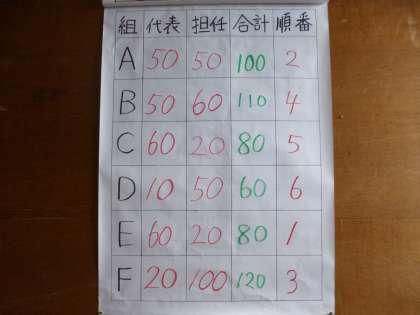 組 代表 担任 合計 順番
A 50 50 100 2
B 50 60 110 4
C 60 20 80 5
D 10 50 60 6
E 60 20 80 1
F 20 100 120 3